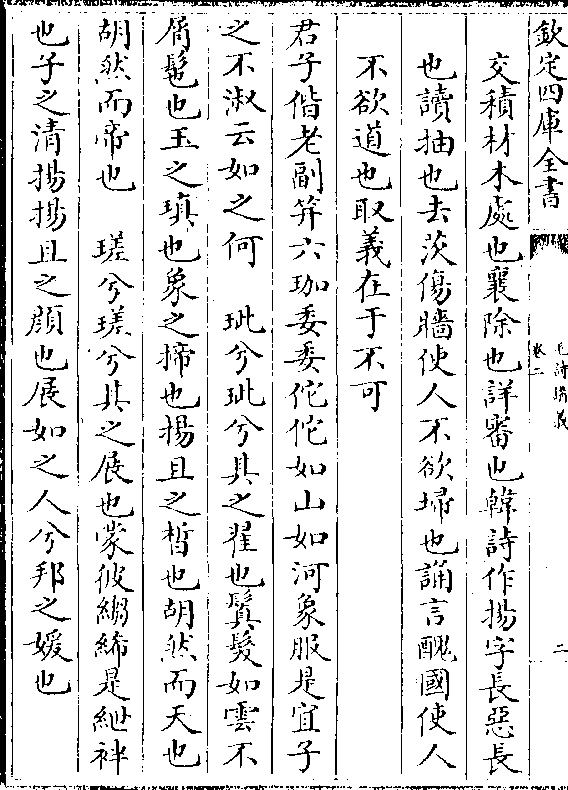 欽定四庫全書
毛詩講義
卷二
二
交積材木處也襄除也詳審也韓詩作揚字長惡長
也讀抽也去茨傷牆使人不欲埽也誦言醜國使人
不欲道也取義在于不可
君子偕老副笄六珈委委佗佗如山如河象服是宜子
之不淑云如之何　玼兮玼兮其之翟也鬒髮如雲不
屑髢也玉之瑱也象之揥也揚且之晳也胡然而天也
胡然而帝也　瑳兮瑳兮其之展也蒙彼縐絺是紲袢
也子之清揚揚且之顔也展如之人兮邦之媛也